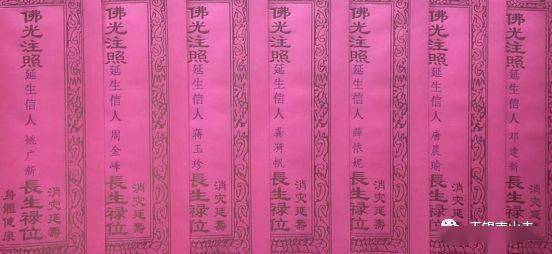 佛光注照
延生信人 姚广新 長生禄位
身體健康
消灾延壽
佛光注照
延生信人 周金峰 長生禄位
消灾延壽
佛光注照
延生信人 蒋玉珍 長生禄位
消灾延壽
佛光注照
延生信人 龚漪帆 長生禄位
消灾延壽
佛光注照
延生信人 薛依妮 長生禄位
消灾延壽
佛光注照
延生信人 唐晨瑜 長生禄位
消灾延壽
佛光注照
延生信人 邓建新 長生禄位